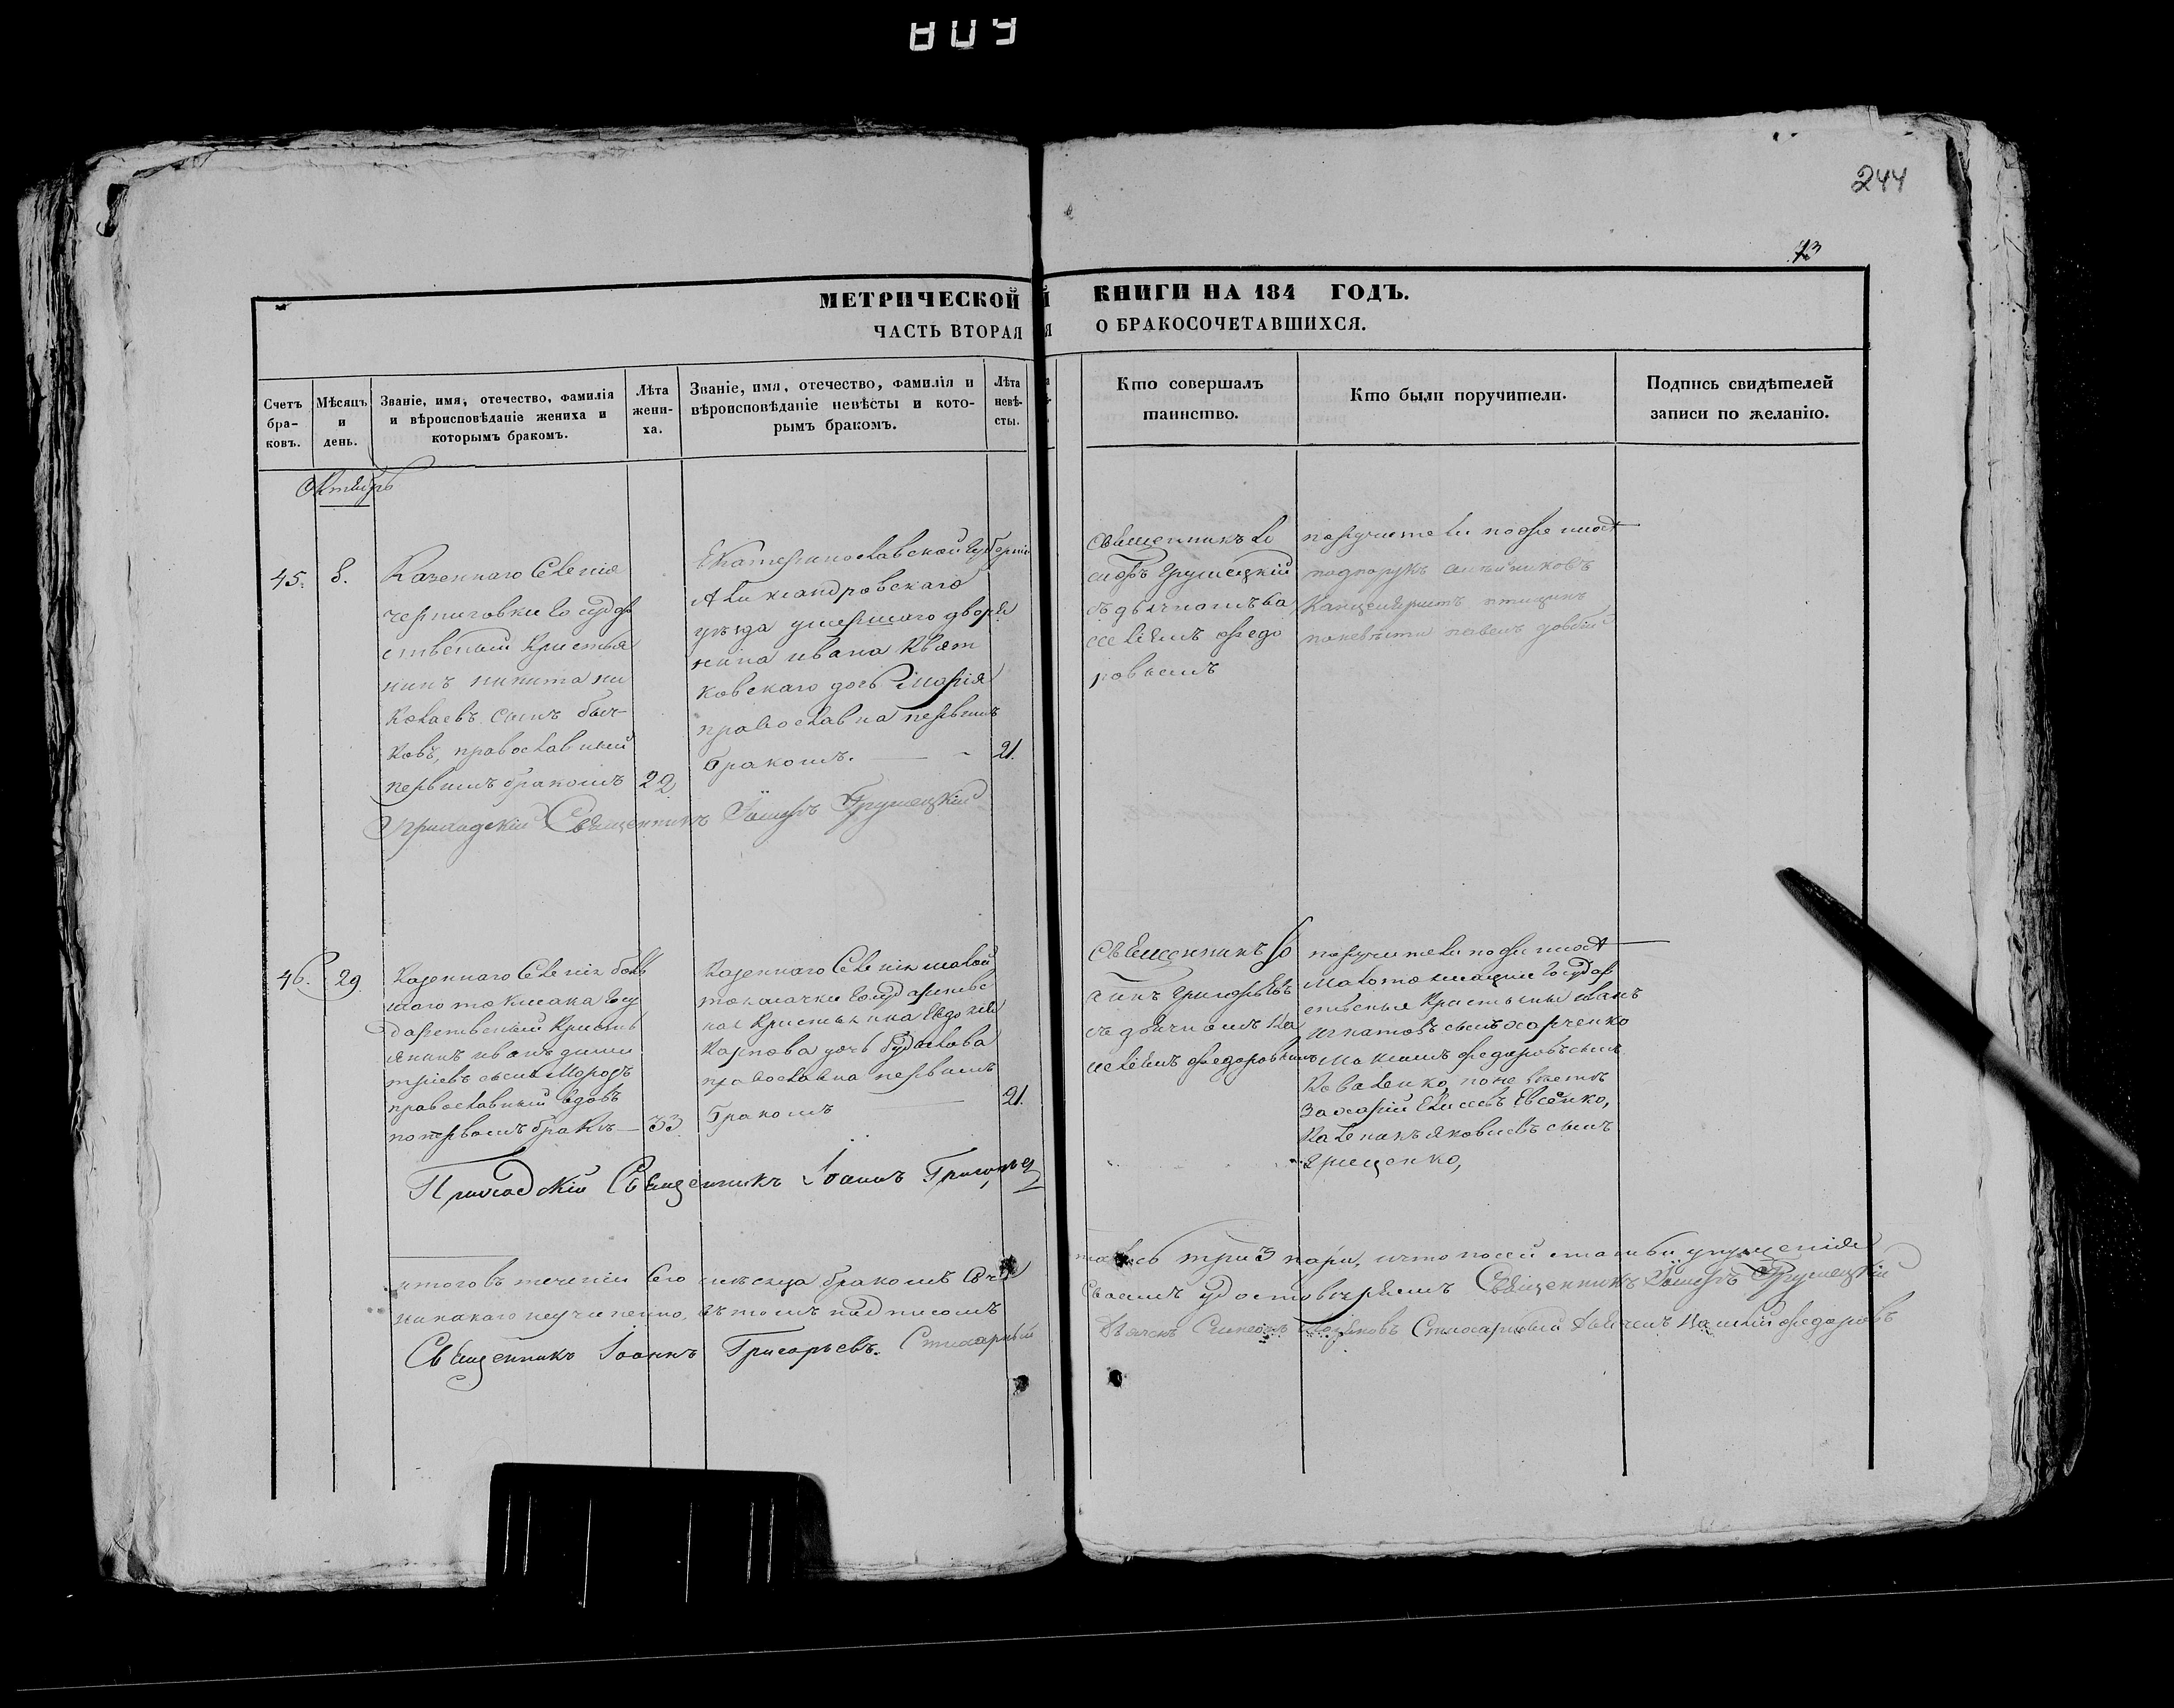 809
244
73
МЕТРИЧЕСКОЙ КНИГИ НА 184 ГОДЪ.
ЧАСТЬ ВТОРАЯ О БРАКОСОЧЕТАВШИХСЯ.
Счетъ
бра-
ковъ.
Мѣсяцъ
и
день.
Званіе, имя, отечество, фамилія
и вѣроисповѣданіе жениха и
которымъ бракомъ.
Лѣта
жени-
ха.
Званіе, имя, отечество, фамилія и
вѣроисповѣданіе невѣсты и кото-
рымъ бракомъ.
Лѣта
невѣ-
сты.
Кто совершалъ
таинство.
Кто были поручители.
Подпись свидѣтелей
записи по желанію.
Октябрь
45.
8.
Казеннаго Селенія
черниговки Государ
ственый Крестья
нинъ никита ни
колаевъ сынъ быч-
ковъ, православный
первымъ бракомъ
22
Екатеринославской губерніи
Александровскаго
уѣзда умершаго дворя
нина ивана Квят
ковскаго дочь Марія
православна первымъ
бракомъ.
21.
Священникъ Іо
сифъ Грушецкій
съ дьячкомъ ва
силіемъ федо
ровымъ
поручители по женихѣ
по невѣсти павелъ
Приходскій Священникъ Іосифъ Грушецкій
46.
29.
Казеннаго Селенія боль
шаго токмака Госу
дарственый Крестья
янинъ иванъ дими
тріевъ сынъ Морозъ
православный вдовъ
по первомъ бракѣ
33
Казеннаго Селенія малой
токмачки Государствен
ная Крестьянка Евдокія
Карпова дочь
православна первымъ
бракомъ
21.
Священникъ Іо
анъ Григорьевъ
съ дьячкомъ Ва
силіемъ федоровымъ
поручители по женихѣ
малотокмацкіе Государ
ственыя Крестьяны иванъ
игнатовъ сынъ харченко
Максимъ федоровъ сынъ
Коваленко, по невѣстѣ
Захарій Евсѣнко,
Каленикъ яковлевъ сынъ
грищенко,
Приходскій Священникъ Іоаннъ Григорьев
итого въ теченіи Сего мѣсяца бракомъ Соче
талось три 3 пары, и что по сей статьи упущенія
никакого неучинено, въ томъ подписомъ
Своимъ удостовѣряемъ Священникъ Іосифъ Грушецкій
Священникъ Іоаннъ Григорьевъ. Стихарный
Дьячекъ Симеонъ Стихарный Дьячекъ Василій федоровъ